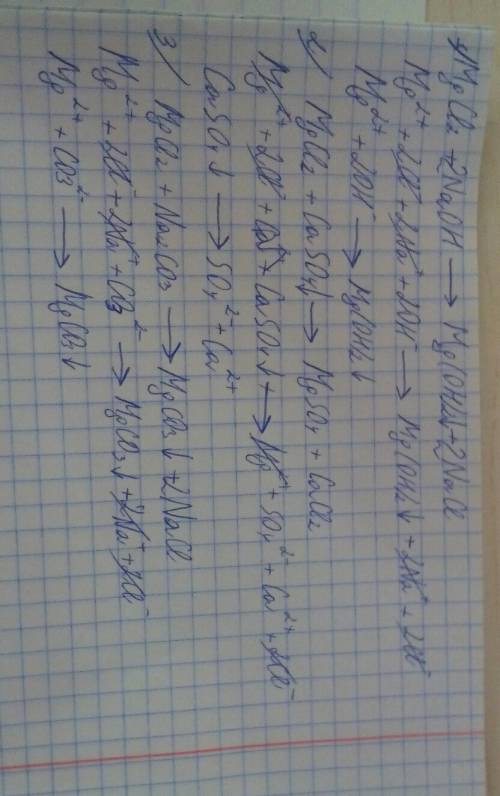 1/ MgCl2 + 2NaOH → Mg(OH)2↓ + 2NaCl
Mg2+ + 2Cl- + 2Na+ + 2OH- → Mg(OH)2↓ + 2Na+ + 2Cl-
Mg2+ + 2OH- → Mg(OH)2↓
2/ MgCl2 + CaSO4↓ → MgSO4 + CaCl2
Mg2+ + 2Cl- + CaSO4↓ → Mg2+ + SO4 2- + Ca2+ + 2Cl-
CaSO4↓ → SO4 2- + Ca2+
3/ MgCl2 + Na2CO3 → MgCO3↓ + 2NaCl
Mg2+ + 2Cl- + 2Na+ + CO3 2- → MgCO3↓ + 2Na+ + 2Cl-
Mg2+ + CO3 2- → MgCO3↓